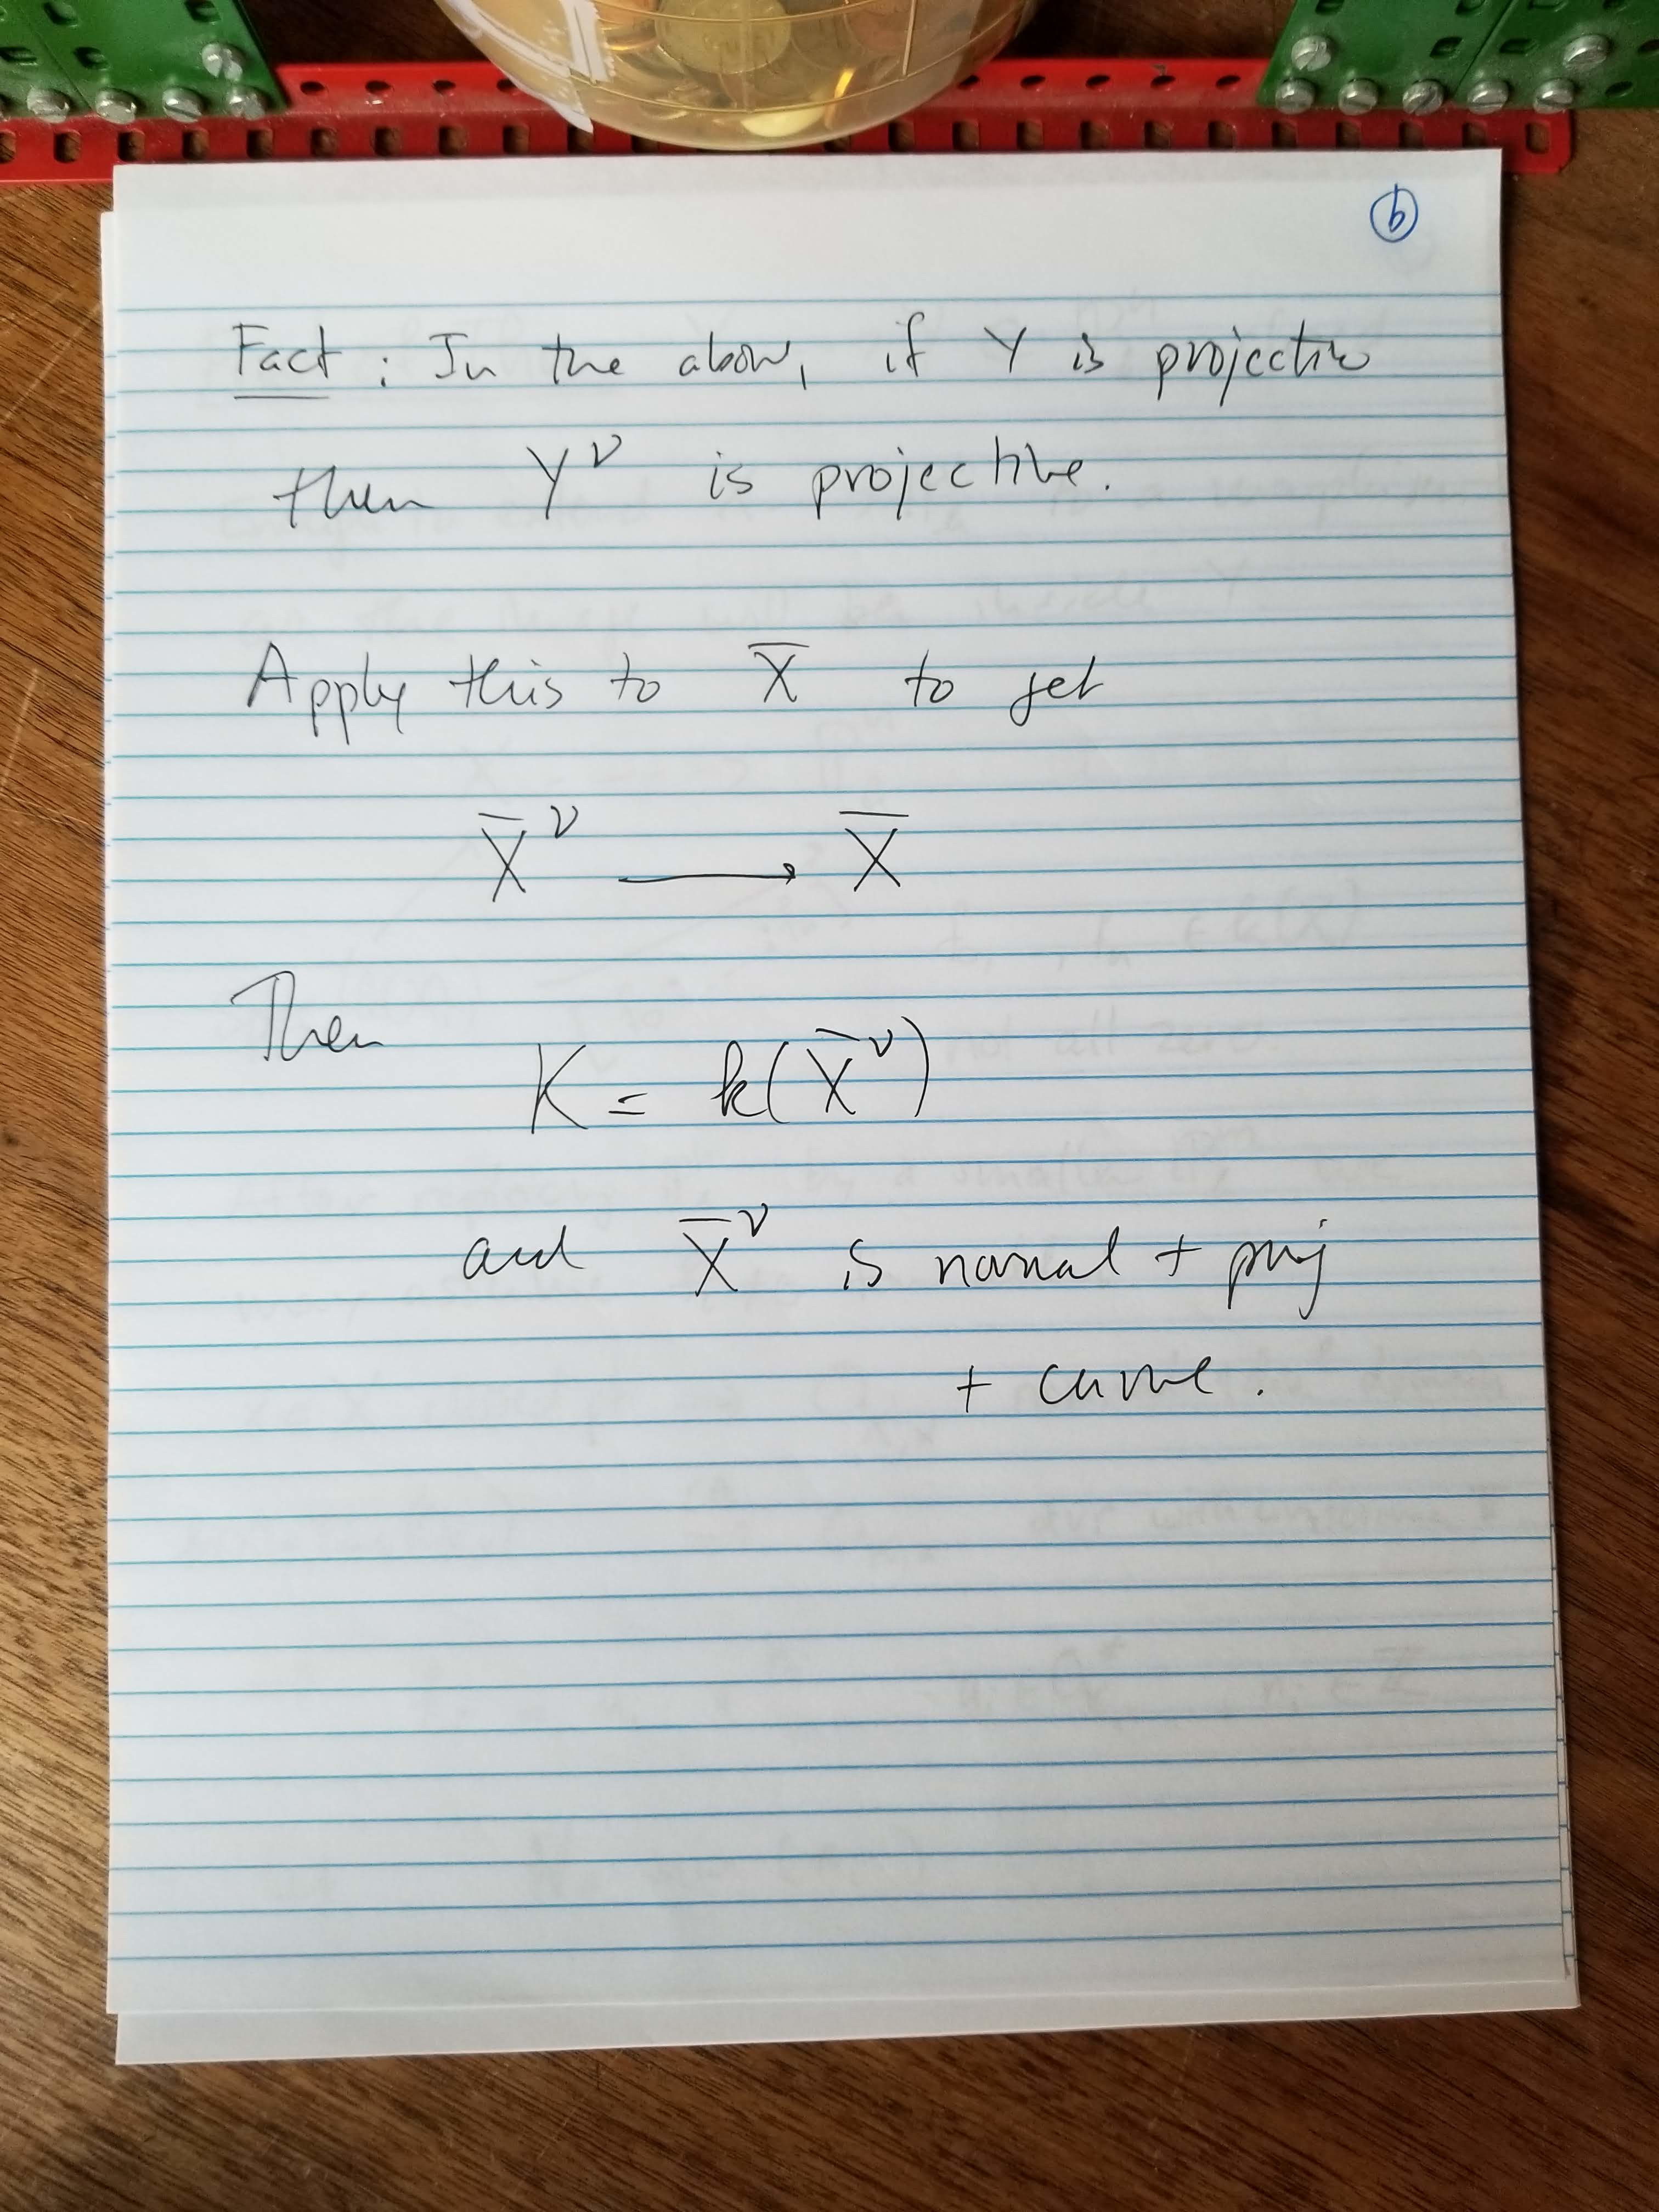 6
Fact : In the above, if Y is projective
then Y^ν is projective.
Apply this to X̄ to get
X̄^ν ⟶ X̄
Then
K = k(X̄^ν)
and X̄^ν is normal + proj
+ curve.